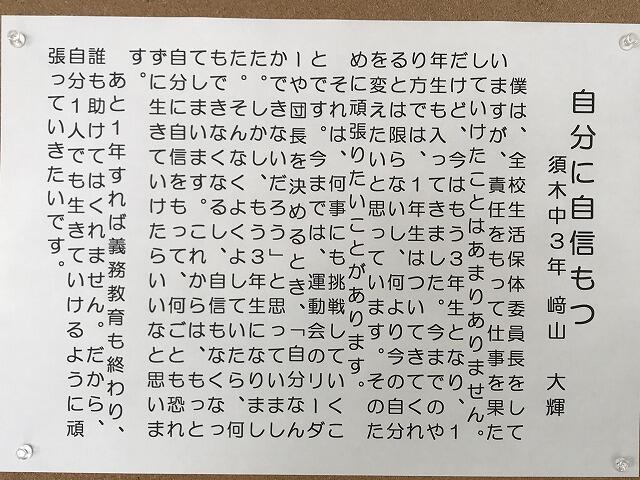 自分に自信もつ
須木中３年　﨑山　大輝
　僕は、全校生活保体委員長をして
いますが、責任をもって仕事を果た
していけたことはあまりありません。
だけど、今はもう３年生となり、１
年生も入ってきました。今までのや
り方では、１年生はついてきてくれ
るとは限らないし、何より今の自分
を変えたいと思っています。そのた
めに頑張りたいことがあります。
　それは、何事にも挑戦していくこ
とです。今までは、運動会のリーダ
ーや団長を決めるとき、「自分なん
かできないだろう」と思っていまし
た。しかし、もう３年生になりまし
た。そんなくよくよしていたら、何
もできなくなるし、自信もなくなっ
てしまいます。これからは、もっと
自分に自信をもって、何ごとも恐れ
ずに生きていけたらいいなと思いま
す。
　あと１年すれば義務教育も終わり、
誰も助けてはくれません。だから、
自分１人でも生きていけるように頑
張っていきたいです。